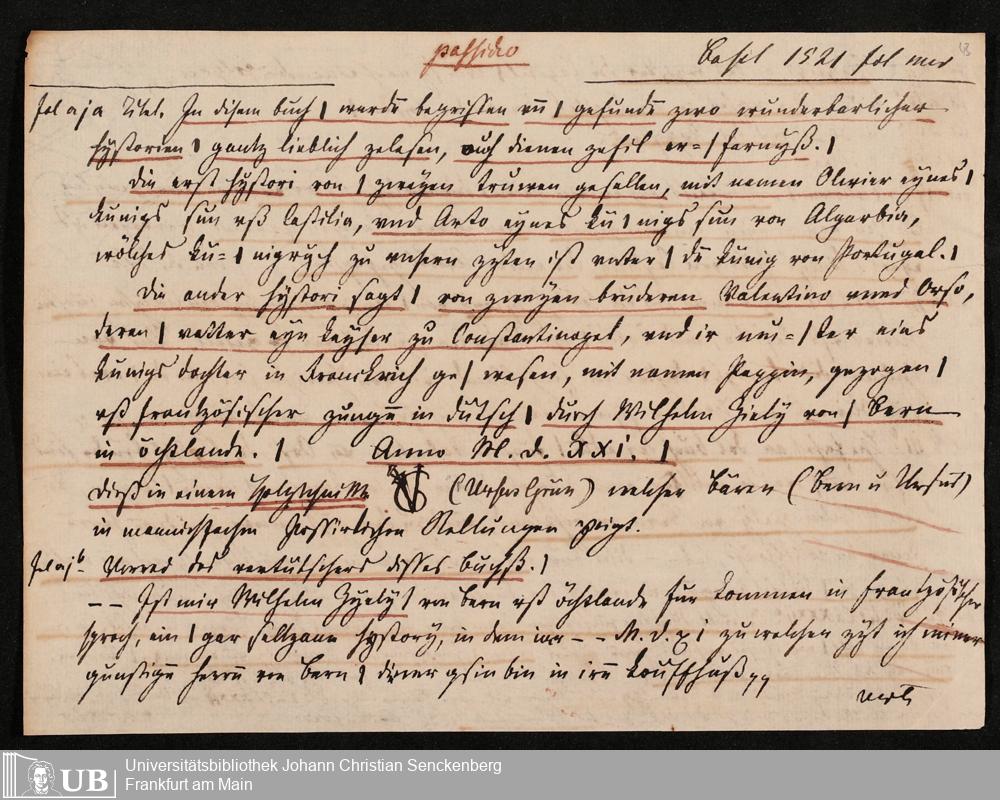 possideo
Basel 1521 fol
fol a j a Titel. In disem buch | werdē begriffen vn̄ | gefundē zwo wunderbarlicher
hystorien | gantz lieblich zelesen, auch dienen zefil er= | farnyß. |
Die erst hystori von | zweyen trüwen gesellen, mit namen Olwier eynes |
kunigs sun vß Castilia, vnd Arto eynes kü | nigs sun von Algarbia,
wölches kü= | nigrych zu vnsern zyten ist vnter | dē kunig von Portugal. |
Die ander hystori sagt | von zweyen bruderen Valentino vnnd Orso,
deren | vatter eyn keyser zu Constantinopel, vnd ir mu= | ter eins
kunigs dochter in Franckrich ge | wesen, mit namen Peppin, gezogen |
vß frantzösischer zungē in dütsch | durch Wilhelm Ziely von | Bern
in öchtlande. | Anno M. d. XXI. |
Dieß in einem Holzschnitte VG (Ursus Grun) welcher Bären (Bern u Ursus)
in mannichfachen possirlichen Stellungen zeigt.
fol a j b Vorred des vertütschers disses buchß. |
-- Ist mir Wilhelm Zyely | von bern vß öchtlande für kommen in frantzösischer
sproch, ein | gar seltzame hystory, in dem iar -- M. d. x i zu welchen zyt ich miner
gunstigē herrn von Bern | diener gsin bin in irē kouffhuß
Universitätsbibliothek Johann Christian Senckenberg
Frankfurt am Main
UB